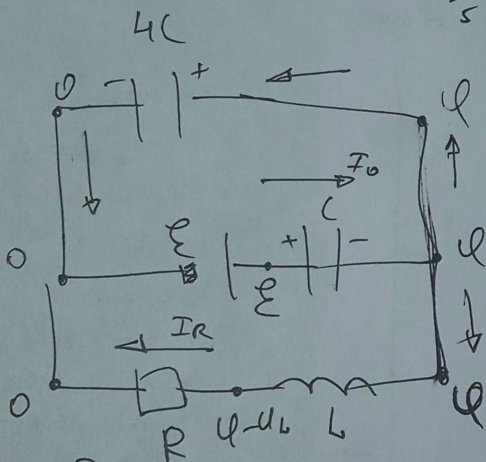 5
4C
0 - + φ
I₀
C
0 ℰ + - φ
ℰ
I_R
0 φ-u_L L φ
R